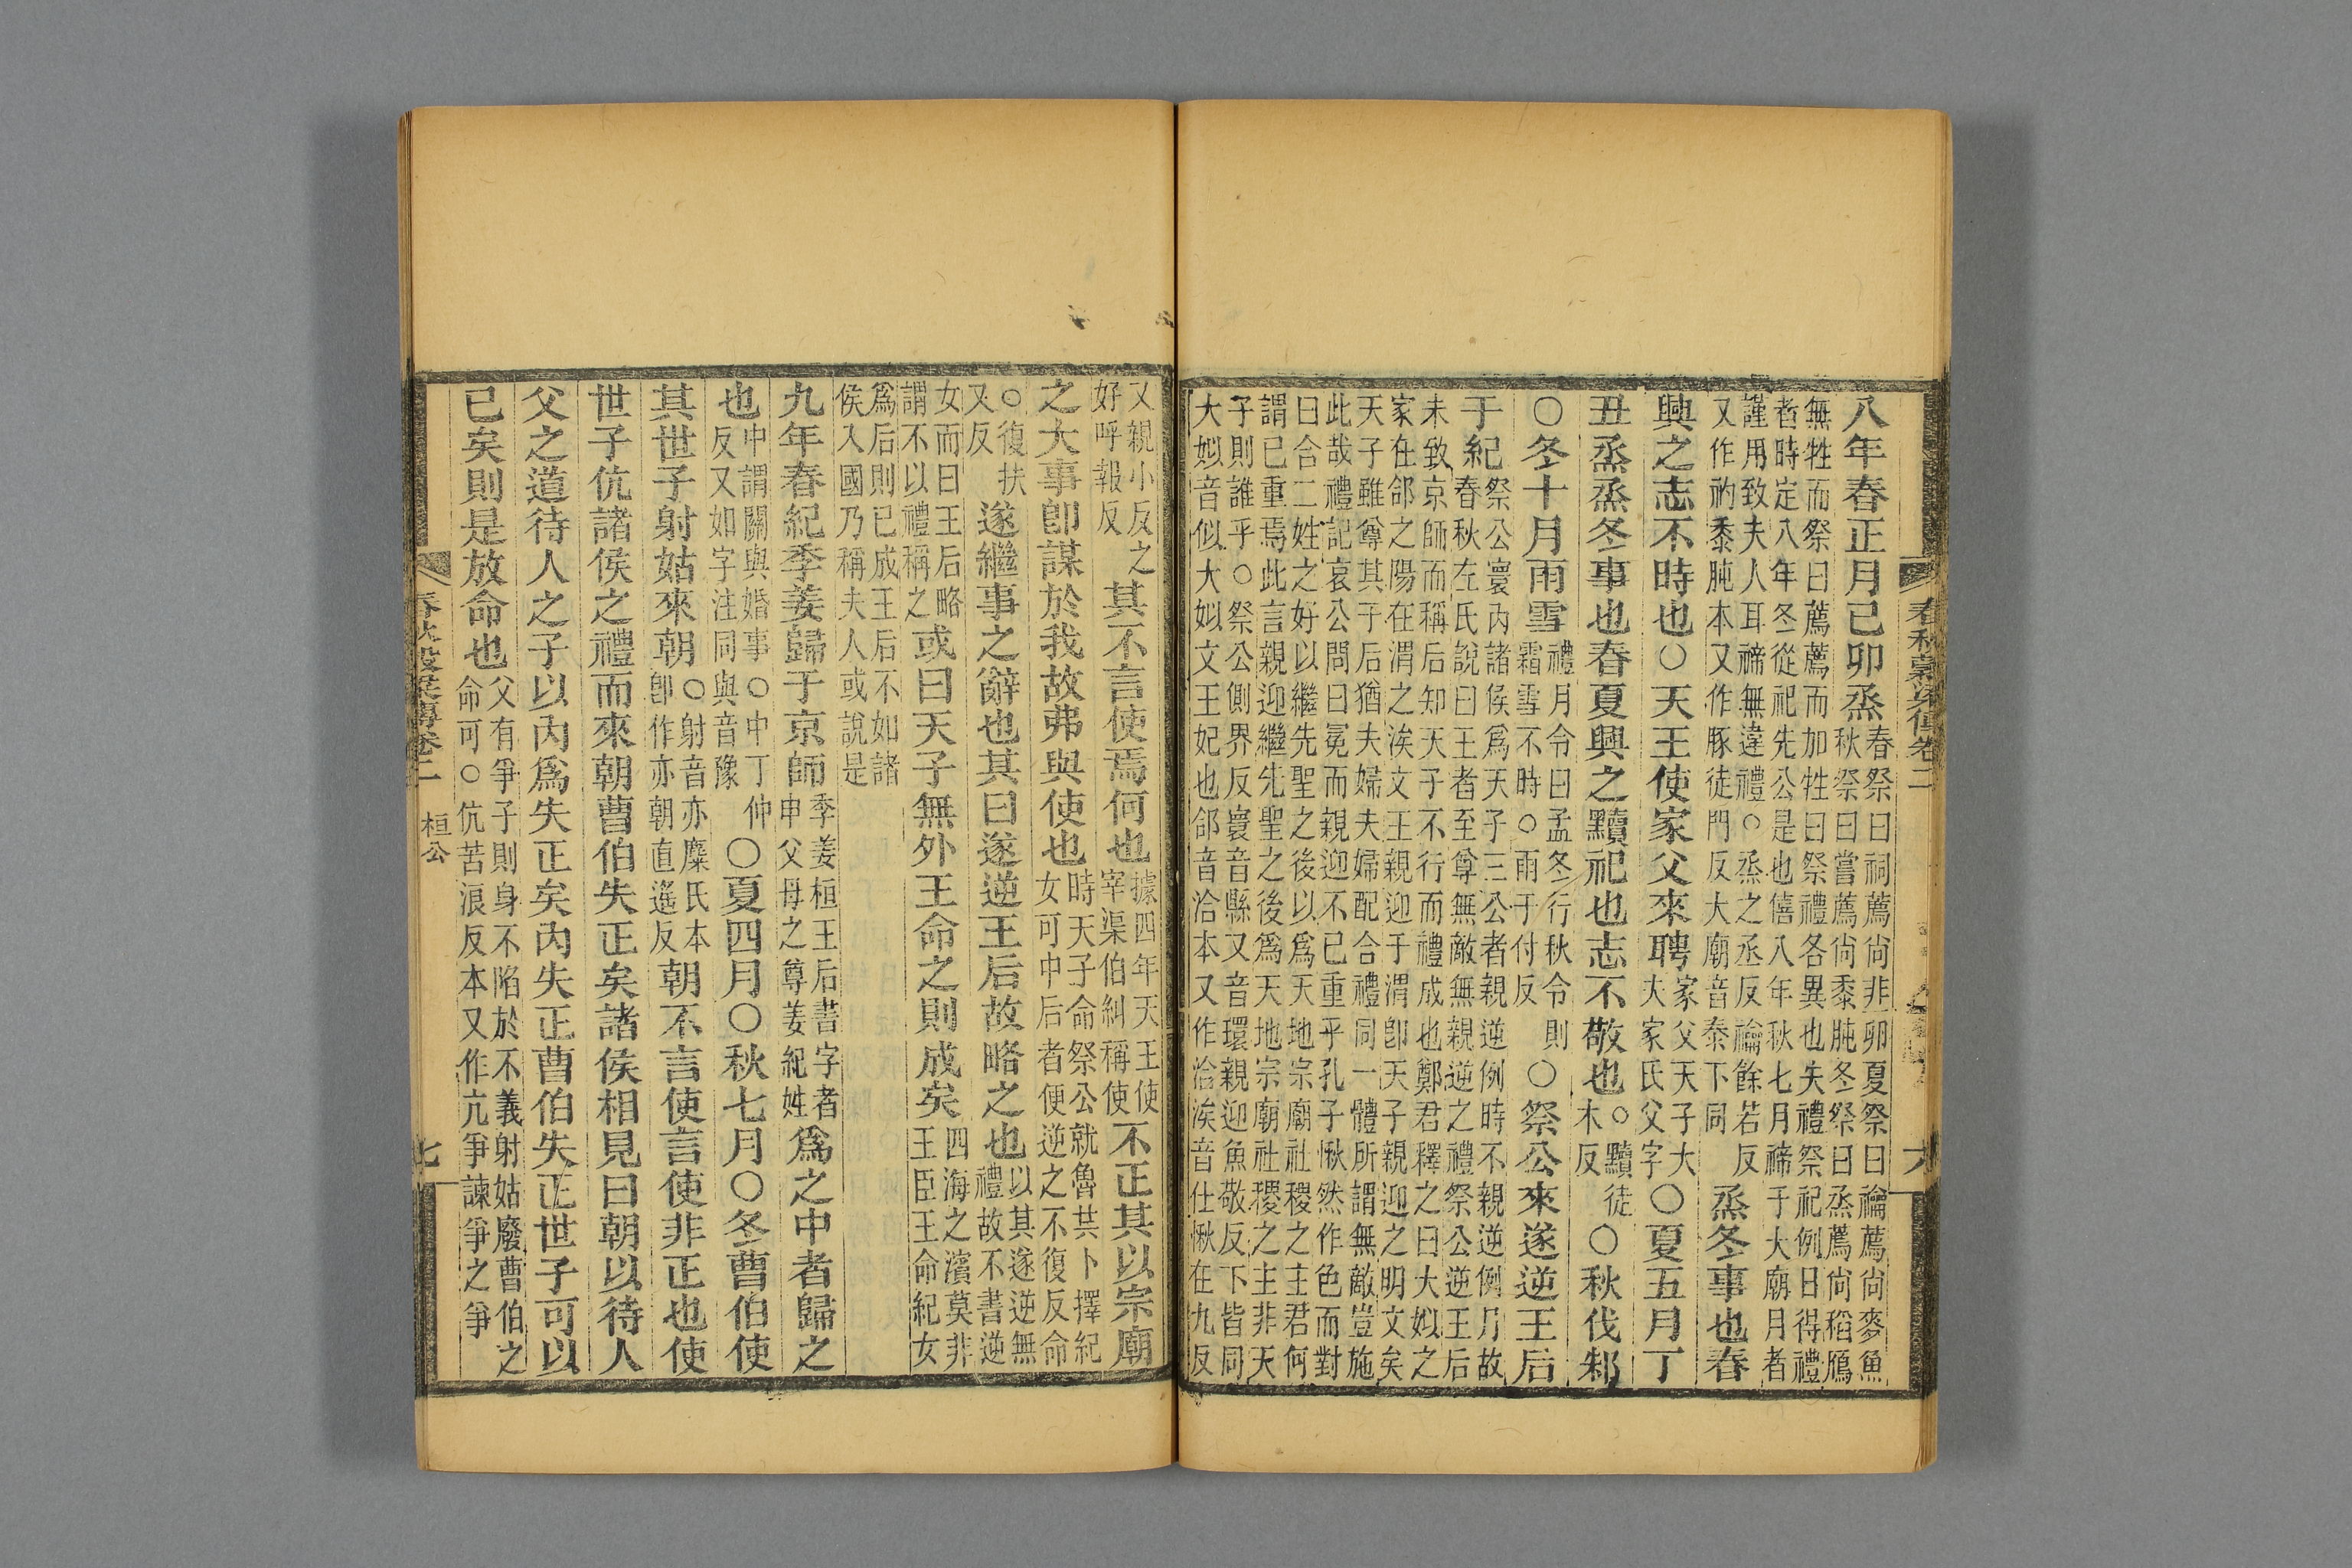 春秋穀梁傳卷二
六
八年春正月己卯烝春祭曰祠薦尚韭卵夏祭曰禴薦尚麥魚
秋祭曰嘗薦尚黍肫冬祭曰烝薦尚稻鴈
無牲而祭曰薦薦而加牲曰祭禮各異也失禮祭祀例日得禮
者時定八年冬從祀先公是也僖八年秋七月禘于大廟月者
謹用致夫人耳禘無違禮○烝之丞反禴餘若反
又作礿黍肫本又作豚徒門反大廟音泰下同烝冬事也春
興之志不時也○天王使家父來聘家父天子大
大家氏父字○夏五月丁
丑烝烝冬事也春夏興之黷祀也志不敬也○黷徒
木反○秋伐邾
○冬十月雨雪禮月令曰孟冬行秋令則
霜雪不時○雨于付反○祭公來遂逆王后
于紀祭公寰內諸侯爲天子三公者親逆例時不親逆例月故
春秋左氏說曰王者至尊無敵無親逆之禮祭公逆王后
未致京師而稱后知天子不行而禮成也鄭君釋之曰大姒之
家在郃之陽在渭之涘文王親迎于渭卽天子親迎之明文矣
天子雖尊其于后猶夫婦夫婦配合禮同一體所謂無敵豈施
此哉禮記哀公問曰冕而親迎不已重乎孔子愀然作色而對
曰合二姓之好以繼先聖之後以爲天地宗廟社稷之主君何
謂已重焉此言親迎繼先聖之後爲天地宗廟社稷之主非天
子則誰乎○祭公側界反寰音縣又音環親迎魚敬反下皆同
大姒音似大姒文王妃也郃音洽本又作洽涘音仕愀在九反
又親小反之
好呼報反其不言使焉何也據四年天王使
宰渠伯糾稱使不正其以宗廟
之大事卽謀於我故弗與使也時天子命祭公就魯共卜擇紀
女可中后者便逆之不復反命
○復扶
又反遂繼事之辭也其曰遂逆王后故略之也以其遂逆無
禮故不書逆
女而曰王后略
謂不以禮稱之或曰天子無外王命之則成矣四海之濱莫非
王臣王命紀女
爲后則已成王后不如諸
侯入國乃稱夫人或說是
九年春紀季姜歸于京師季姜桓王后書字者
申父母之尊姜紀姓爲之中者歸之
也中謂關與婚事○中丁仲
反又如字注同與音豫○夏四月○秋七月○冬曹伯使
其世子射姑來朝○射音亦麋氏本
卽作亦朝直遙反朝不言使言使非正也使
世子伉諸侯之禮而來朝曹伯失正矣諸侯相見曰朝以待人
父之道待人之子以內爲失正矣內失正曹伯失正世子可以
已矣則是放命也父有爭子則身不陷於不義射姑廢曹伯之
命可○伉苦浪反本又作亢爭諫爭之爭
春秋穀梁傳卷二
桓公
七